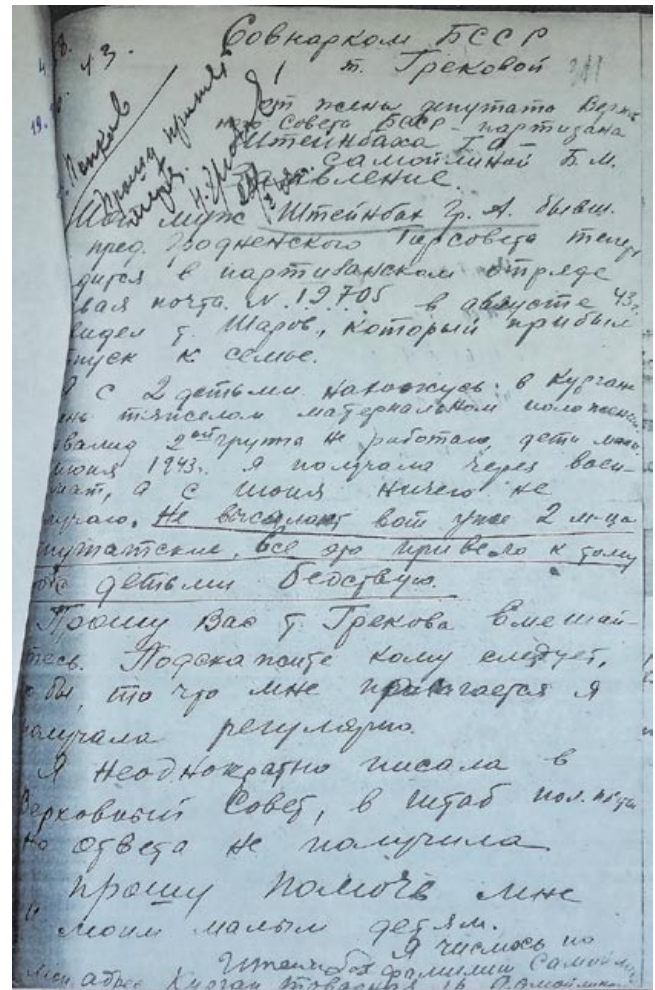 Совнарком БССР
т. Грековой
311
8. 43.
19.
Прошу принять
меры.
от жены депутата Верхов
ного совета БССР – партизана
Штейнбаха Г.А. –
Самойлиной Б.М.
Заявление.
Мой муж Штейнбах Гр. А. бывш.
пред. Гродненского Горсовета тепер
дится в партизанском отряде
вая почта N. 19705 в августе 43г.
видел т. Шаров, который прибыл
пуск к семье.
Я с 2 детьми нахожусь в Курган
ень тяжелом материальном положени
валид 2ой группы не работаю, дети мал
июня 1943г. я получала через воен-
мат, а с июня ничего не
лучаю. Не высылают вот уже 2 м-ца
путатские, все это привело к тому
с детьми бедствую.
Прошу Вас т. Грекова вмешай-
тесь. Подскажите кому следует,
бы, то что мне полагается я
олучала регулярно.
Я неоднократно писала в
Верховный Совет, в штаб
но ответа не получила
прошу помочь мне
и моим малым детям.
Я числюсь по
фамилии Самойл
Мой адрес Курган Товарная Самойлиной